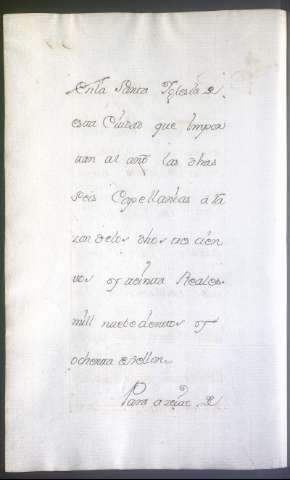 en la Santa Iglesia de
esta Ciudad que impor
tan al año las dhas
seis Capellanias a ra
zon de los dhos trescien
tos y treinta Reales
mill nuebecientos y
ochenta de vellon.
Para azeite de